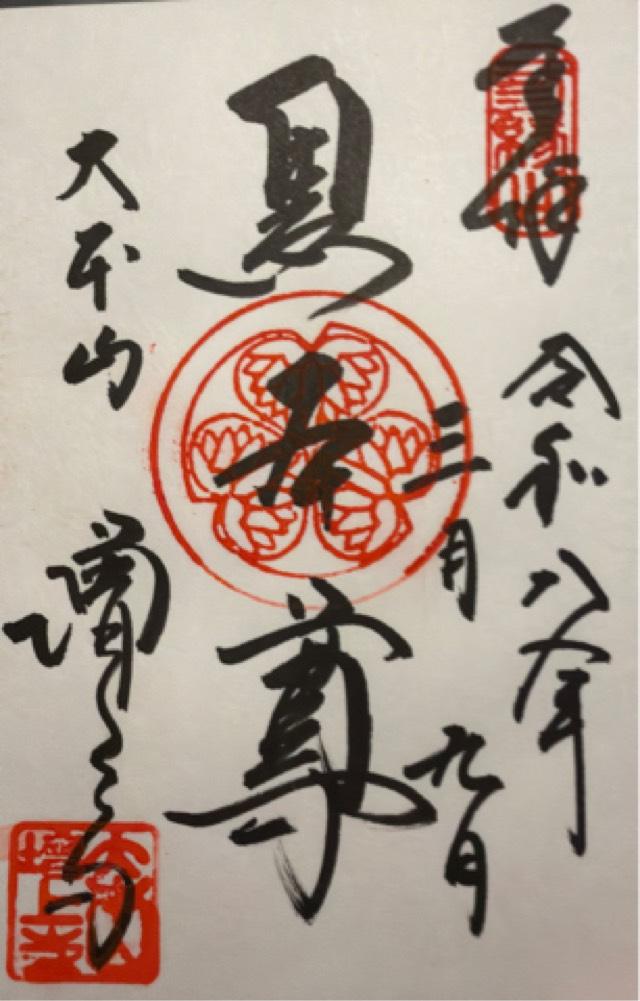 奉拝
令和八年
三月九日
黒本尊
大本山
増上寺